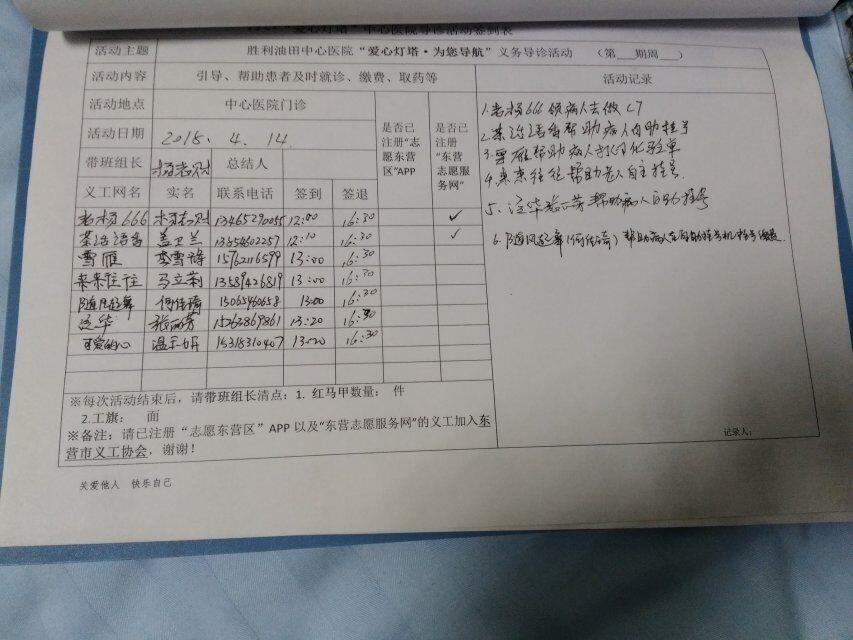 "爱心灯塔"中心医院导诊活动签到表
活动主题 胜利油田中心医院"爱心灯塔·为您导航"义务导诊活动 (第___期周___)
活动内容 引导、帮助患者及时就诊、缴费、取药等 活动记录
活动地点 中心医院门诊 是否已注册"志愿东营区"APP 是否已注册"东营志愿服务网"
活动日期 2015.4.14
带班组长 总结人
义工网名 实名 联系电话 签到 签退
老杨666 13465270055 12:00 16:30 ✓
茶语语香 盖卫兰 12:10 16:30 ✓
雪雁 15762116599 13:00 16:30
来来往往 马立莉 13589426819 13:00 16:30
随风起舞 何佳琦 15065460658 13:00 16:30
泛华 张丽芳 15263869861 13:20 16:30
可爱的心 15318310407 13:20 16:30
※每次活动结束后,请带班组长清点:1. 红马甲数量: 件
2.工旗: 面
※备注:请已注册"志愿东营区"APP以及"东营志愿服务网"的义工加入东
营市义工协会,谢谢!
1.老杨666领病人去做CT
2.茶语语香帮助病人自助挂号
3.雪雁帮助病人打印化验单
4.来来往往帮助老人自主挂号.
5.泛华张丽芳帮助病人自助挂号
6.随风起舞(何佳琦)帮助病人在自助挂号机挂号缴费.
记录人:
关爱他人 快乐自己